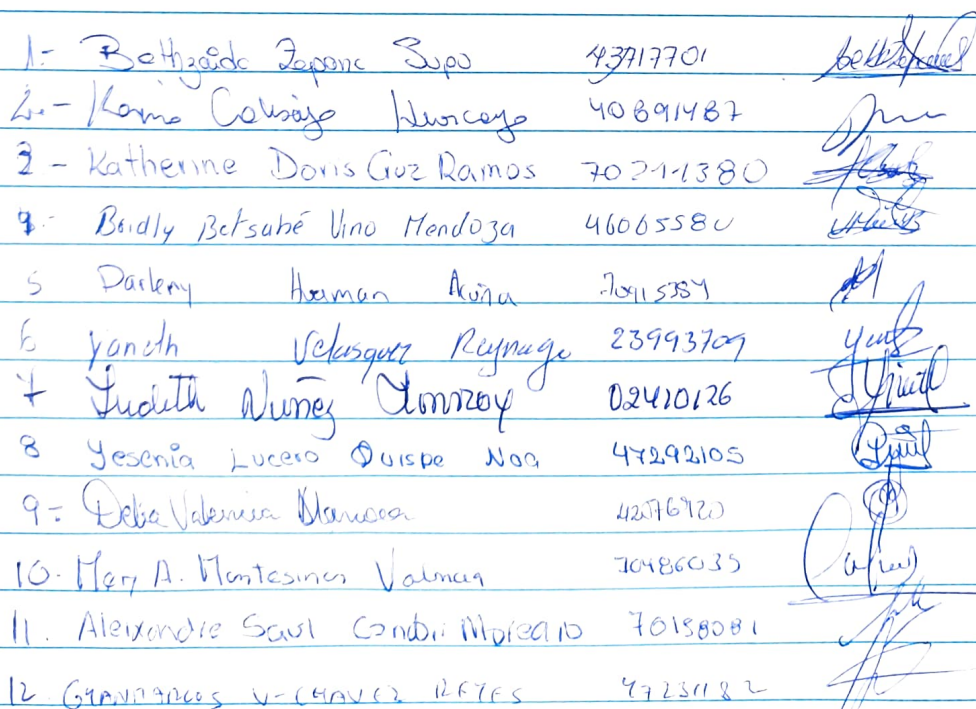 1.- Bethzaida Zapana Supo 43717701
2.- Karina Callsaya Huarcaya 40891487
3 - Katherine Doris Cruz Ramos 70211380
4.- Beidly Betsabé Vino Mendoza 46065580
5 Darleny Huaman Acuña
6 Yaneth Velasquez Reynaga 23993709
7 Judith Nuñez Monroy 02410126
8 Yesenia Lucero Quispe Noa 47292105
9 = Delia Valencia
10. Mery A. Montesinos Valencia 70486035
11. Alexandre Saul Condori 70158081
12. V- CHAVEZ REYES 47231182